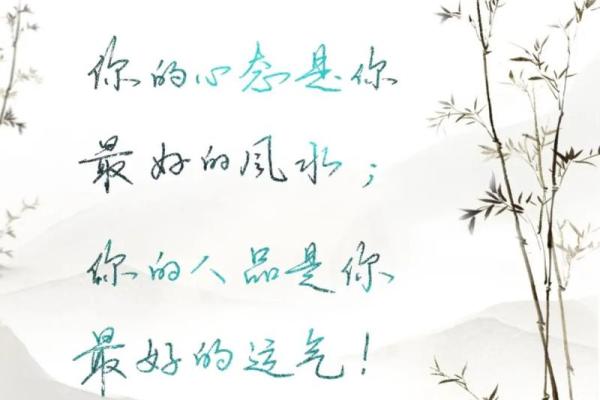 你的心态是你
最好的風水；
你的人品是你
最好的运气！